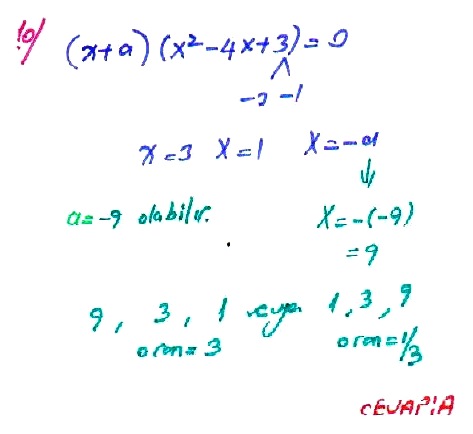 10/ (x+a)(x²-4x+3)=0
-3 -1
x=3 X=1 X=-a
a=-9 olabilir. X=-(-9)
=9
9, 3, 1 veya 1, 3, 9
oran=3 oran=1/3
CEVAP:A